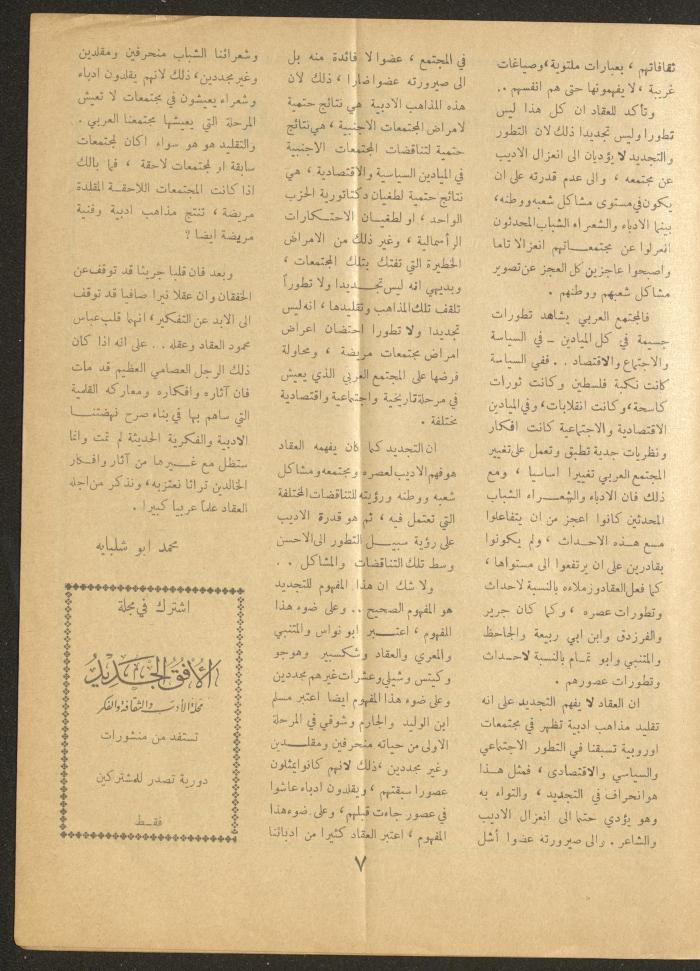 ثقافاتهم ، بعبارات ملتوية ، وصياغات
غريبة ، لا يفهمونها حتى هم انفسهم ..
وتأكد للعقاد ان كل هذا ليس
تطورا وليس تجديدا ذلك لان التطور
والتجديد لا يؤديان الى انعزال الاديب
عن مجتمعه ، والى عدم قدرته على ان
يكون في مستوى مشاكل شعبه ووطنه ،
بينما الادباء والشعراء الشباب المحدثون
انعزلوا عن مجتمعاتهم انعزالا تاما
واصبحوا عاجزين كل العجز عن تصوير
مشاكل شعبهم ووطنهم .
فالمجتمع العربي يشاهد تطورات
جسيمة في كل الميادين ـ في السياسة
والاجتماع والاقتصاد .. ففي السياسة
كانت نكبة فلسطين وكانت ثورات
كاسحة ، وكانت انقلابات ، وفي الميادين
الاقتصادية والاجتماعية كانت افكار
ونظريات جدية تطبق وتعمل على تغيير
المجتمع العربي تغييرا اساسيا ، ومع
ذلك فان الادباء والشعراء الشباب
المحدثين كانوا اعجز من ان يتفاعلوا
مع هذه الاحداث ، ولم يكونوا
بقادرين على ان يرتفعوا الى مستواها ،
كما فعل العقاد وزملاءه بالنسبة لاحداث
وتطورات عصره ، وكما كان جرير
والفرزدق وابن ابي ربيعة والجاحظ
والمتنبي وابو تمام بالنسبة لاحداث
وتطورات عصورهم .
ان العقاد لا يفهم التجديد على انه
تقليد مذاهب ادبية تظهر في مجتمعات
اوروبية تسبقنا في التطور الاجتماعي
والسياسي والاقتصادي ، فمثل هذا
هو انحراف في التجديد ، والتواء به
وهو يؤدي حتما الى انعزال الاديب
والشاعر . والى صيرورته عضوا أشل
في المجتمع ، عضوا لا فائدة منه بل
الى صيرورته عضوا ضارا ، ذلك لان
هذه المذاهب الادبية هي نتائج حتمية
لامراض المجتمعات الاجنبية ، هي نتائج
حتمية لتناقضات المجتمعات الاجنبية
في الميادين السياسية والاقتصادية ، هي
نتائج حتمية لطغيان دكتاتورية الحزب
الواحد ، او لطغيان الاحتكارات
الرأسمالية ، وغير ذلك من الامراض
الخطيرة التي تفتك بتلك المجتمعات ،
وبديهي انه ليس تجديدا ولا تطوراً
تلقف تلك المذاهب وتقليدها ، انه ليس
تجديدا ولا تطورا احتضان اعراض
امراض مجتمعات مريضة ، ومحاولة
فرضها على المجتمع العربي الذي يعيش
في مرحلة تاريخية واجتماعية واقتصادية
مختلفة .
ان التجديد كما كان يفهمه العقاد
هو فهم الاديب لعصره ومجتمعه ومشاكل
شعبه ووطنه ورؤيته للتناقضات المختلفة
التي تعتمل فيه ، ثم هو قدرة الاديب
على رؤية سبيل التطور الى الاحسن
وسط تلك التناقضات والمشاكل ..
ولا شك ان هذا المفهوم للتجديد
هو المفهوم الصحيح .. وعلى ضوء هذا
المفهوم ، اعتبر ابو نواس والمتنبي
والمعري والعقاد وشكسبير وهوجو
وكيتس وشيلي وعشرات غيرهم مجددين
وعلى ضوء هذا المفهوم ايضا اعتبر مسلم
ابن الوليد والجارم وشوقي في المرحلة
الاولى من حياته منحرفين ومقلدين
وغير مجددين ، ذلك لانهم كانوا يمثلون
عصورا سبقتهم ، ويقلدون ادباء عاشوا
في عصور جاءت قبلهم ، وعلى ضوء هذا
المفهوم ، اعتبر العقاد كثيرا من ادبائنا
وشعرائنا الشباب منحرفين ومقلدين
وغير مجددين ، ذلك لانهم يقلدون ادباء
وشعراء يعيشون في مجتمعات لا تعيش
المرحلة التي يعيشها مجتمعنا العربي .
والتقليد هو هو سواء اكان لمجتمعات
سابقة او لمجتمعات لاحقة ، فما بالك
اذا كانت المجتمعات اللاحقة المقلدة
مريضة ، تنتج مذاهب ادبية وفنية
مريضة ايضا ؟
وبعد فان قلبا جريئا قد توقف عن
الخفقان وان عقلا نيرا صافيا قد توقف
الى الابد عن التفكير ، انهما قلب عباس
محمود العقاد وعقله .. على انه اذا كان
ذلك الرجل العصامي العظيم قد مات
فان آثاره وافكاره ومعاركه القلمية
التي ساهم بها في بناء صرح نهضتنا
الادبية والفكرية الحديثة لم تمت وانما
ستظل مع غيرها من آثار وافكار
الخالدين تراثا نعتز به ، ونذكر من اجله
العقاد علماً عربيا كبيرا .
محمد ابو شلبايه
اشترك في مجلة
الأفق الجديد
مجلة الأدب والثقافة والفكر
تستفد من منشورات
دورية تصدر للمشتركين
فقط
٧